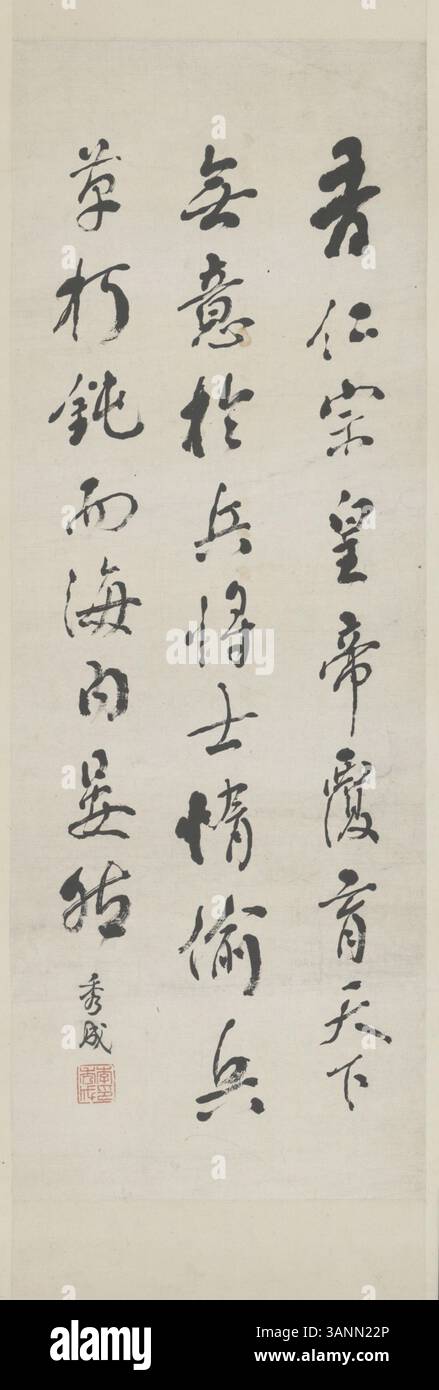 昔仁宗皇帝覆育天下
無意於兵將士惰偷兵
草朽鈍而海內晏然
秀成
alamy
Image ID: 3ANN22P
www.alamy.com